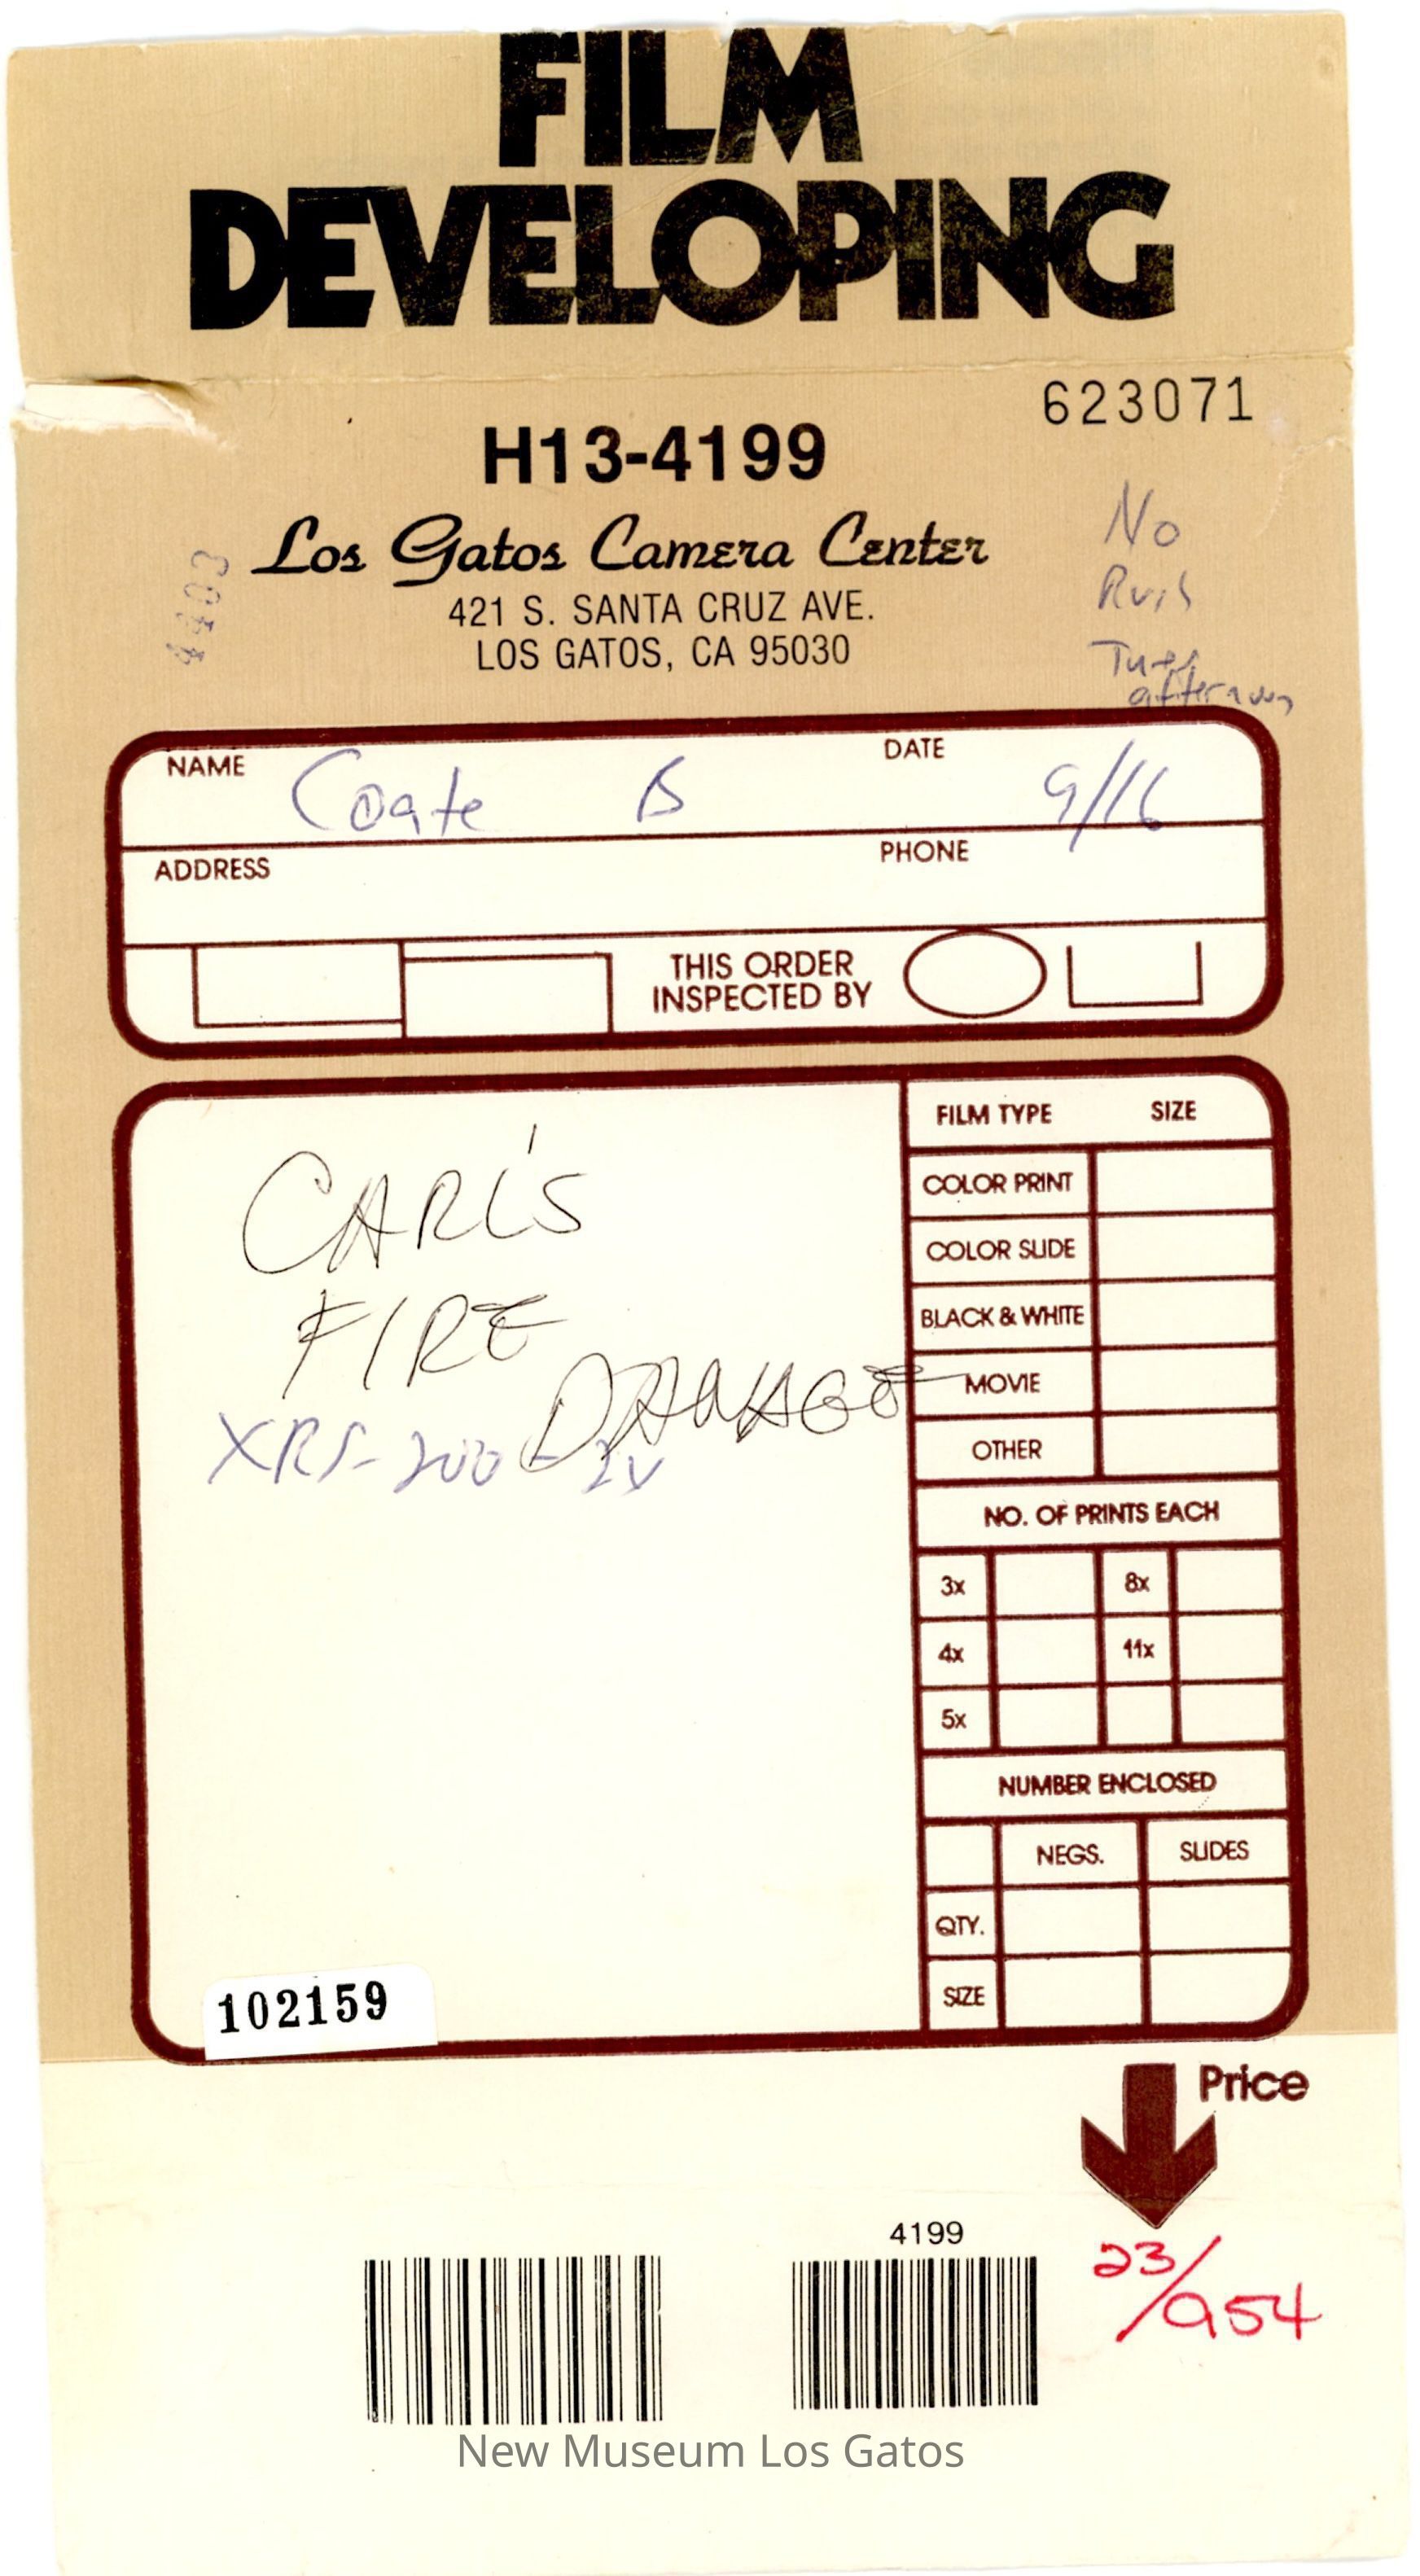 FILM
DEVELOPING
623071
H13-4199
Los Gatos Camera Center
421 S. SANTA CRUZ AVE.
LOS GATOS, CA 95030
No
Rush
Tues
afternoon
NAME Coate B DATE 9/16
ADDRESS PHONE
THIS ORDER
INSPECTED BY
CARL'S
FIRE
DAMAGE
XRS-200
FILM TYPE SIZE
COLOR PRINT
COLOR SLIDE
BLACK & WHITE
MOVIE
OTHER
NO. OF PRINTS EACH
3x 8x
4x 11x
5x
NUMBER ENCLOSED
NEGS. SLIDES
QTY.
SIZE
102159
Price
4199
23/954
New Museum Los Gatos